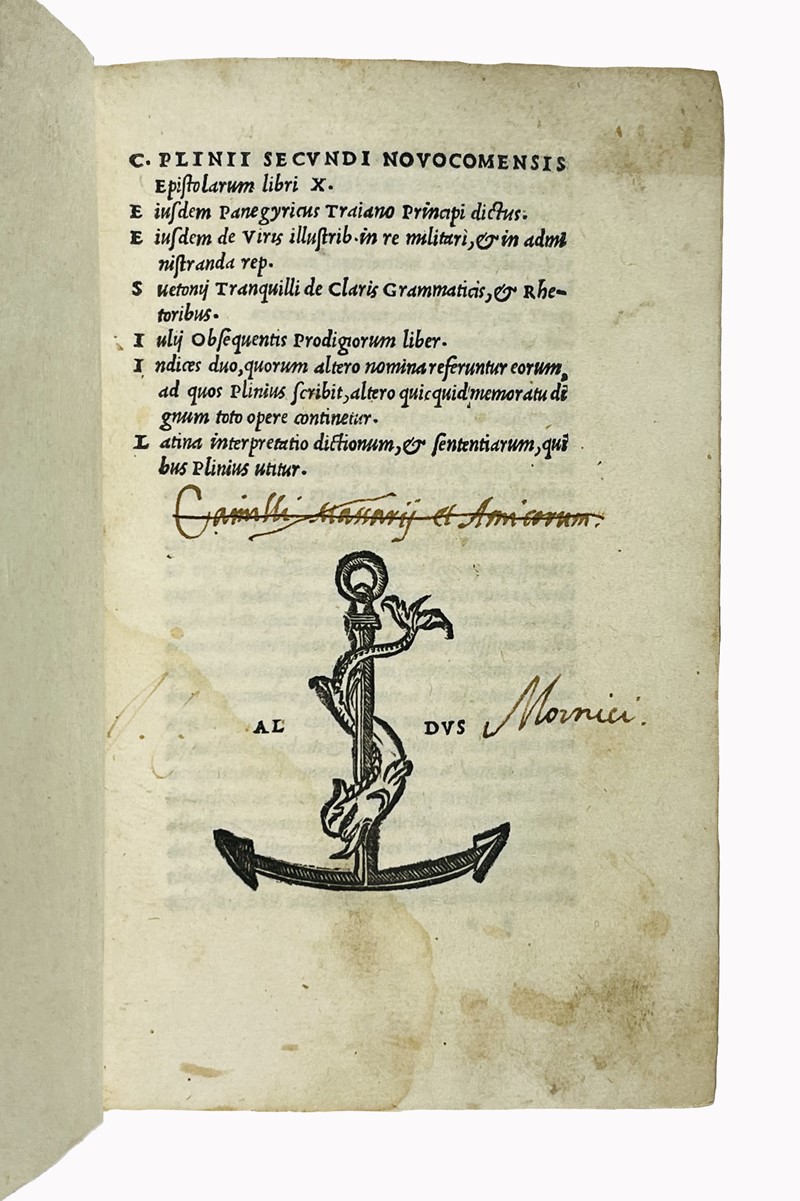 C. PLINII SECVNDI NOVOCOMENSIS
Epistolarum libri X.
E iusdem Panegyricus Traiano Principi dictus.
E iusdem de Viris illustrib. in re militari, & in admi
nistranda rep.
S uetonij Tranquilli de Claris Grammaticis, & Rhe-
toribus.
I ulij Obsequentis Prodigiorum liber.
I ndices duo, quorum altero nomina referuntur eorum,
ad quos Plinius scribit, altero quicquid memoratu di
gnum toto opere continetur.
L atina interpretatio dictionum, & sententiarum, qui
bus Plinius utitur.
Camilli Massarij et Amicorum.
AL DVS Mornici.